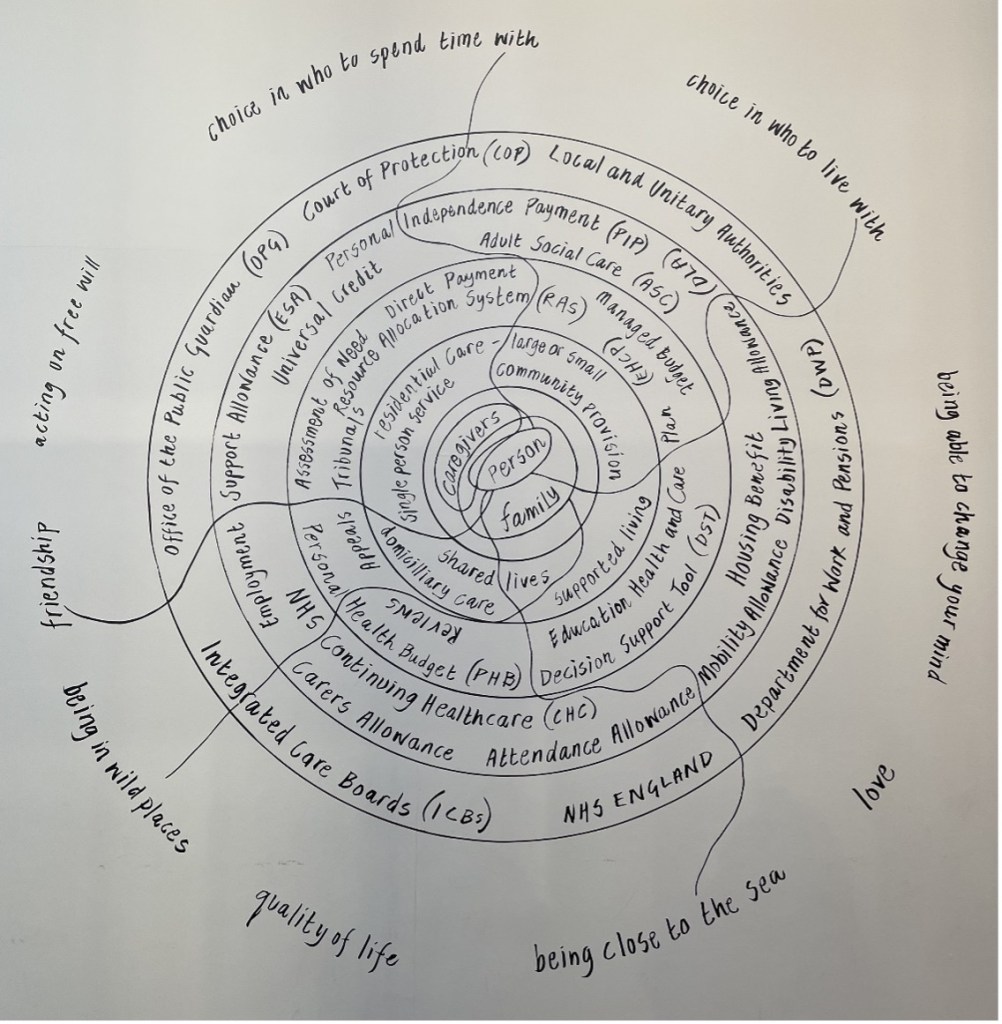 choice in who to spend time with
choice in who to live with
being able to change your mind
love
being close to the sea
quality of life
being in wild places
friendship
acting on free will
Office of the Public Guardian (OPG)
Court of Protection (COP)
Local and Unitary Authorities
Department for Work and Pensions (DWP)
NHS ENGLAND
Integrated Care Boards (ICBs)
Employment Support Allowance (ESA)
Personal Independence Payment (PIP)
Universal Credit
Adult Social Care (ASC)
Disability Living Allowance (DLA)
Housing Benefit
Mobility Allowance
Attendance Allowance
Carers Allowance
NHS Continuing Healthcare (CHC)
Assessment of Need
Direct Payment
Resource Allocation System (RAS)
Tribunals
Appeals
Managed Budget
Education Health and Care Plan (EHCP)
Decision Support Tool (DST)
Personal Health Budget (PHB)
Reviews
residential care - large or small
single person service
community provision
supported living
shared lives
domicilliary care
caregivers
person
family